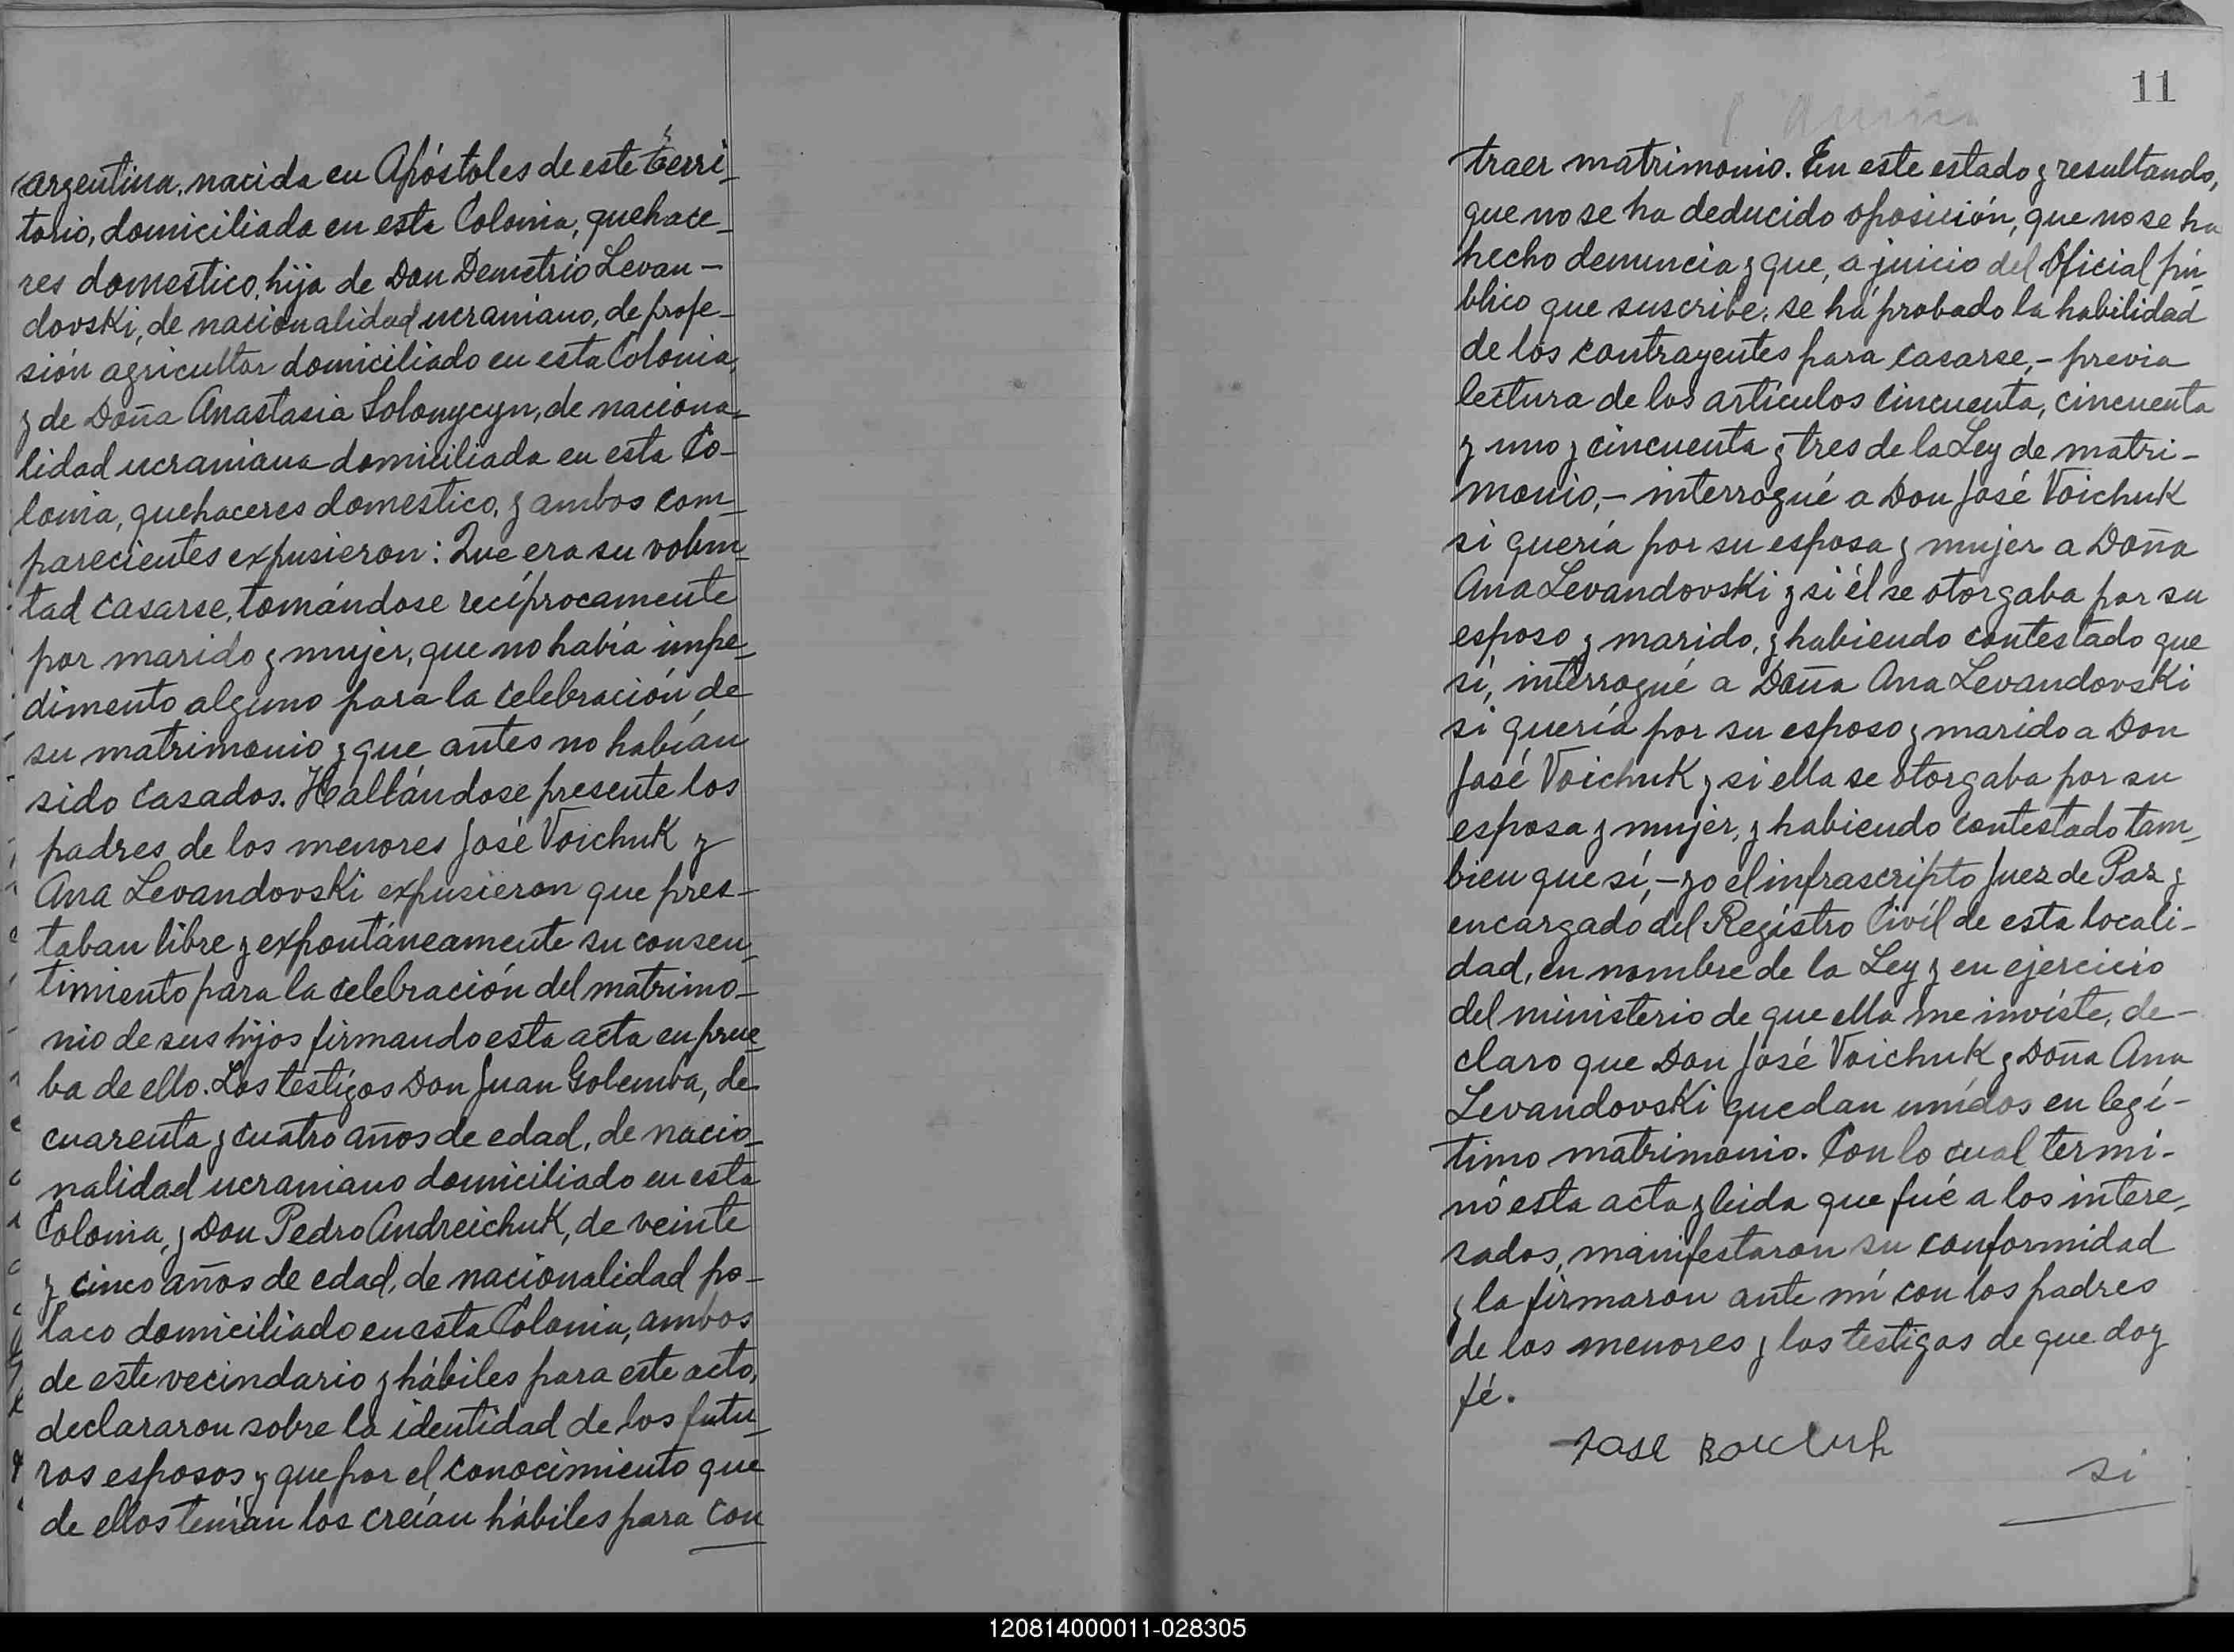 argentina, nacida en Apóstoles de este terri-
torio, domiciliada en esta Colonia, quehace-
res domestico, hija de Don Demetrio Levan-
dovski, de nacionalidad ucraniano, de profe-
sión agricultor domiciliado en esta Colonia,
y de Doña Anastasia Solonycyn, de naciona-
lidad ucraniana domiciliada en esta Co-
lonia, quehaceres domestico, y ambos com-
parecientes expusieron: Que era su volun-
tad casarse, tomándose recíprocamente
por marido y mujer, que no había impe-
dimento alguno para la celebración de
su matrimonio y que antes no habían
sido casados. Hallándose presente los
padres de los menores José Voichuk y
Ana Levandovski expusieron que pres-
taban libre y expontáneamente su consen-
timiento para la celebración del matrimo-
nio de sus hijos firmando esta acta en prue-
ba de ello. Los testigos Don Juan Golemba, de
cuarenta y cuatro años de edad, de nacio-
nalidad ucraniano domiciliado en esta
Colonia, y Don Pedro Andreichuk, de veinte
y cinco años de edad, de nacionalidad po-
laco domiciliado en esta Colonia, ambos
de este vecindario y hábiles para este acto,
declararon sobre la identidad de los futu-
ros esposos y que por el conocimiento que
de ellos tenían los creían hábiles para con
11
traer matrimonio. En este estado y resultando,
que no se ha deducido oposición, que no se ha
hecho denuncia y que, a juicio del Oficial pú-
blico que suscribe, se há probado la habilidad
de los contrayentes para casarse,- previa
lectura de los artículos cincuenta, cincuenta
y uno y cincuenta y tres de la Ley de matri-
monio,- interrogué a Don José Voichuk
si quería por su esposa y mujer a Doña
Ana Levandovski y si él se otorgaba por su
esposo y marido, y habiendo contestado que
sí, interrogué a Doña Ana Levandovski
si quería por su esposo y marido a Don
José Voichuk y si ella se otorgaba por su
esposa y mujer, y habiendo contestado tam-
bien que sí,- yo el infrascripto Juez de Paz y
encargado del Registro Civíl de esta locali-
dad, en nombre de la Ley y en ejercicio
del ministerio de que ella me inviste, de-
claro que Don José Voichuk y Doña Ana
Levandovski quedan unidos en legí-
timo matrimonio. Con lo cual termi-
nó esta acta y leida que fué a los intere-
sados, manifestaron su conformidad
y la firmaron ante mí con los padres
de los menores y los testigos de que doy
fé.
Jose
si
120814000011-028305